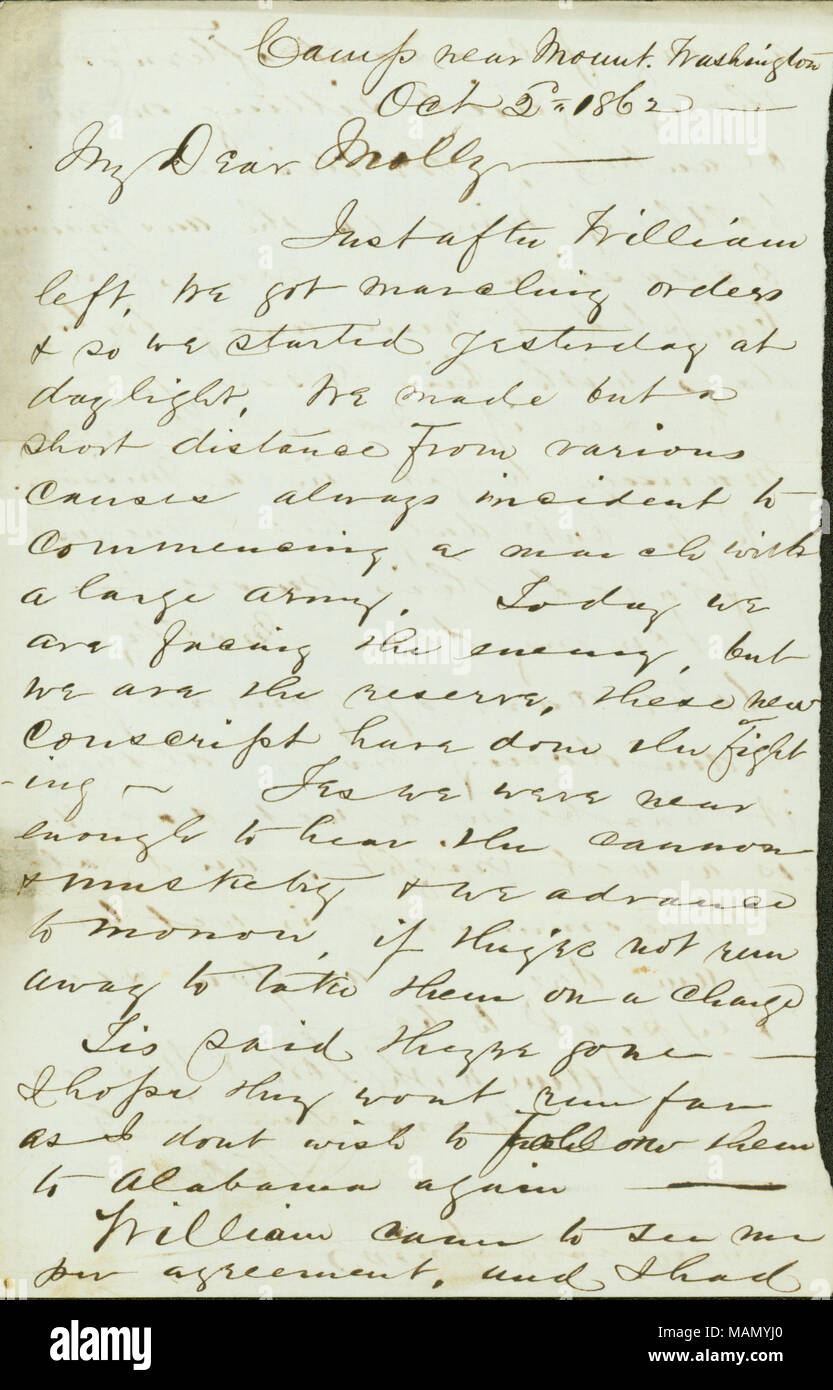 Camp near Mount. Washington
Oct 2d 1862
My Dear Molly
Just after William
left, we got marching orders
& so we started yesterday at
daylight, we made but a
short distance from various
causes always incident to
commencing a march with
a large army. Today we
are facing the enemy, but
we are the reserve, these new
conscript have done the fight
-ing — Yes we were near
enough to hear the cannon
& musketry & we advance
tomorrow, if they're not run
away to take them on a charge
Tis said they're gone —
I hope they wont run far
as I dont wish to follow them
to Alabama again —
William came to see me
per agreement, and I had
alamy
alamy
Image ID: MAMYJ0
www.alamy.com